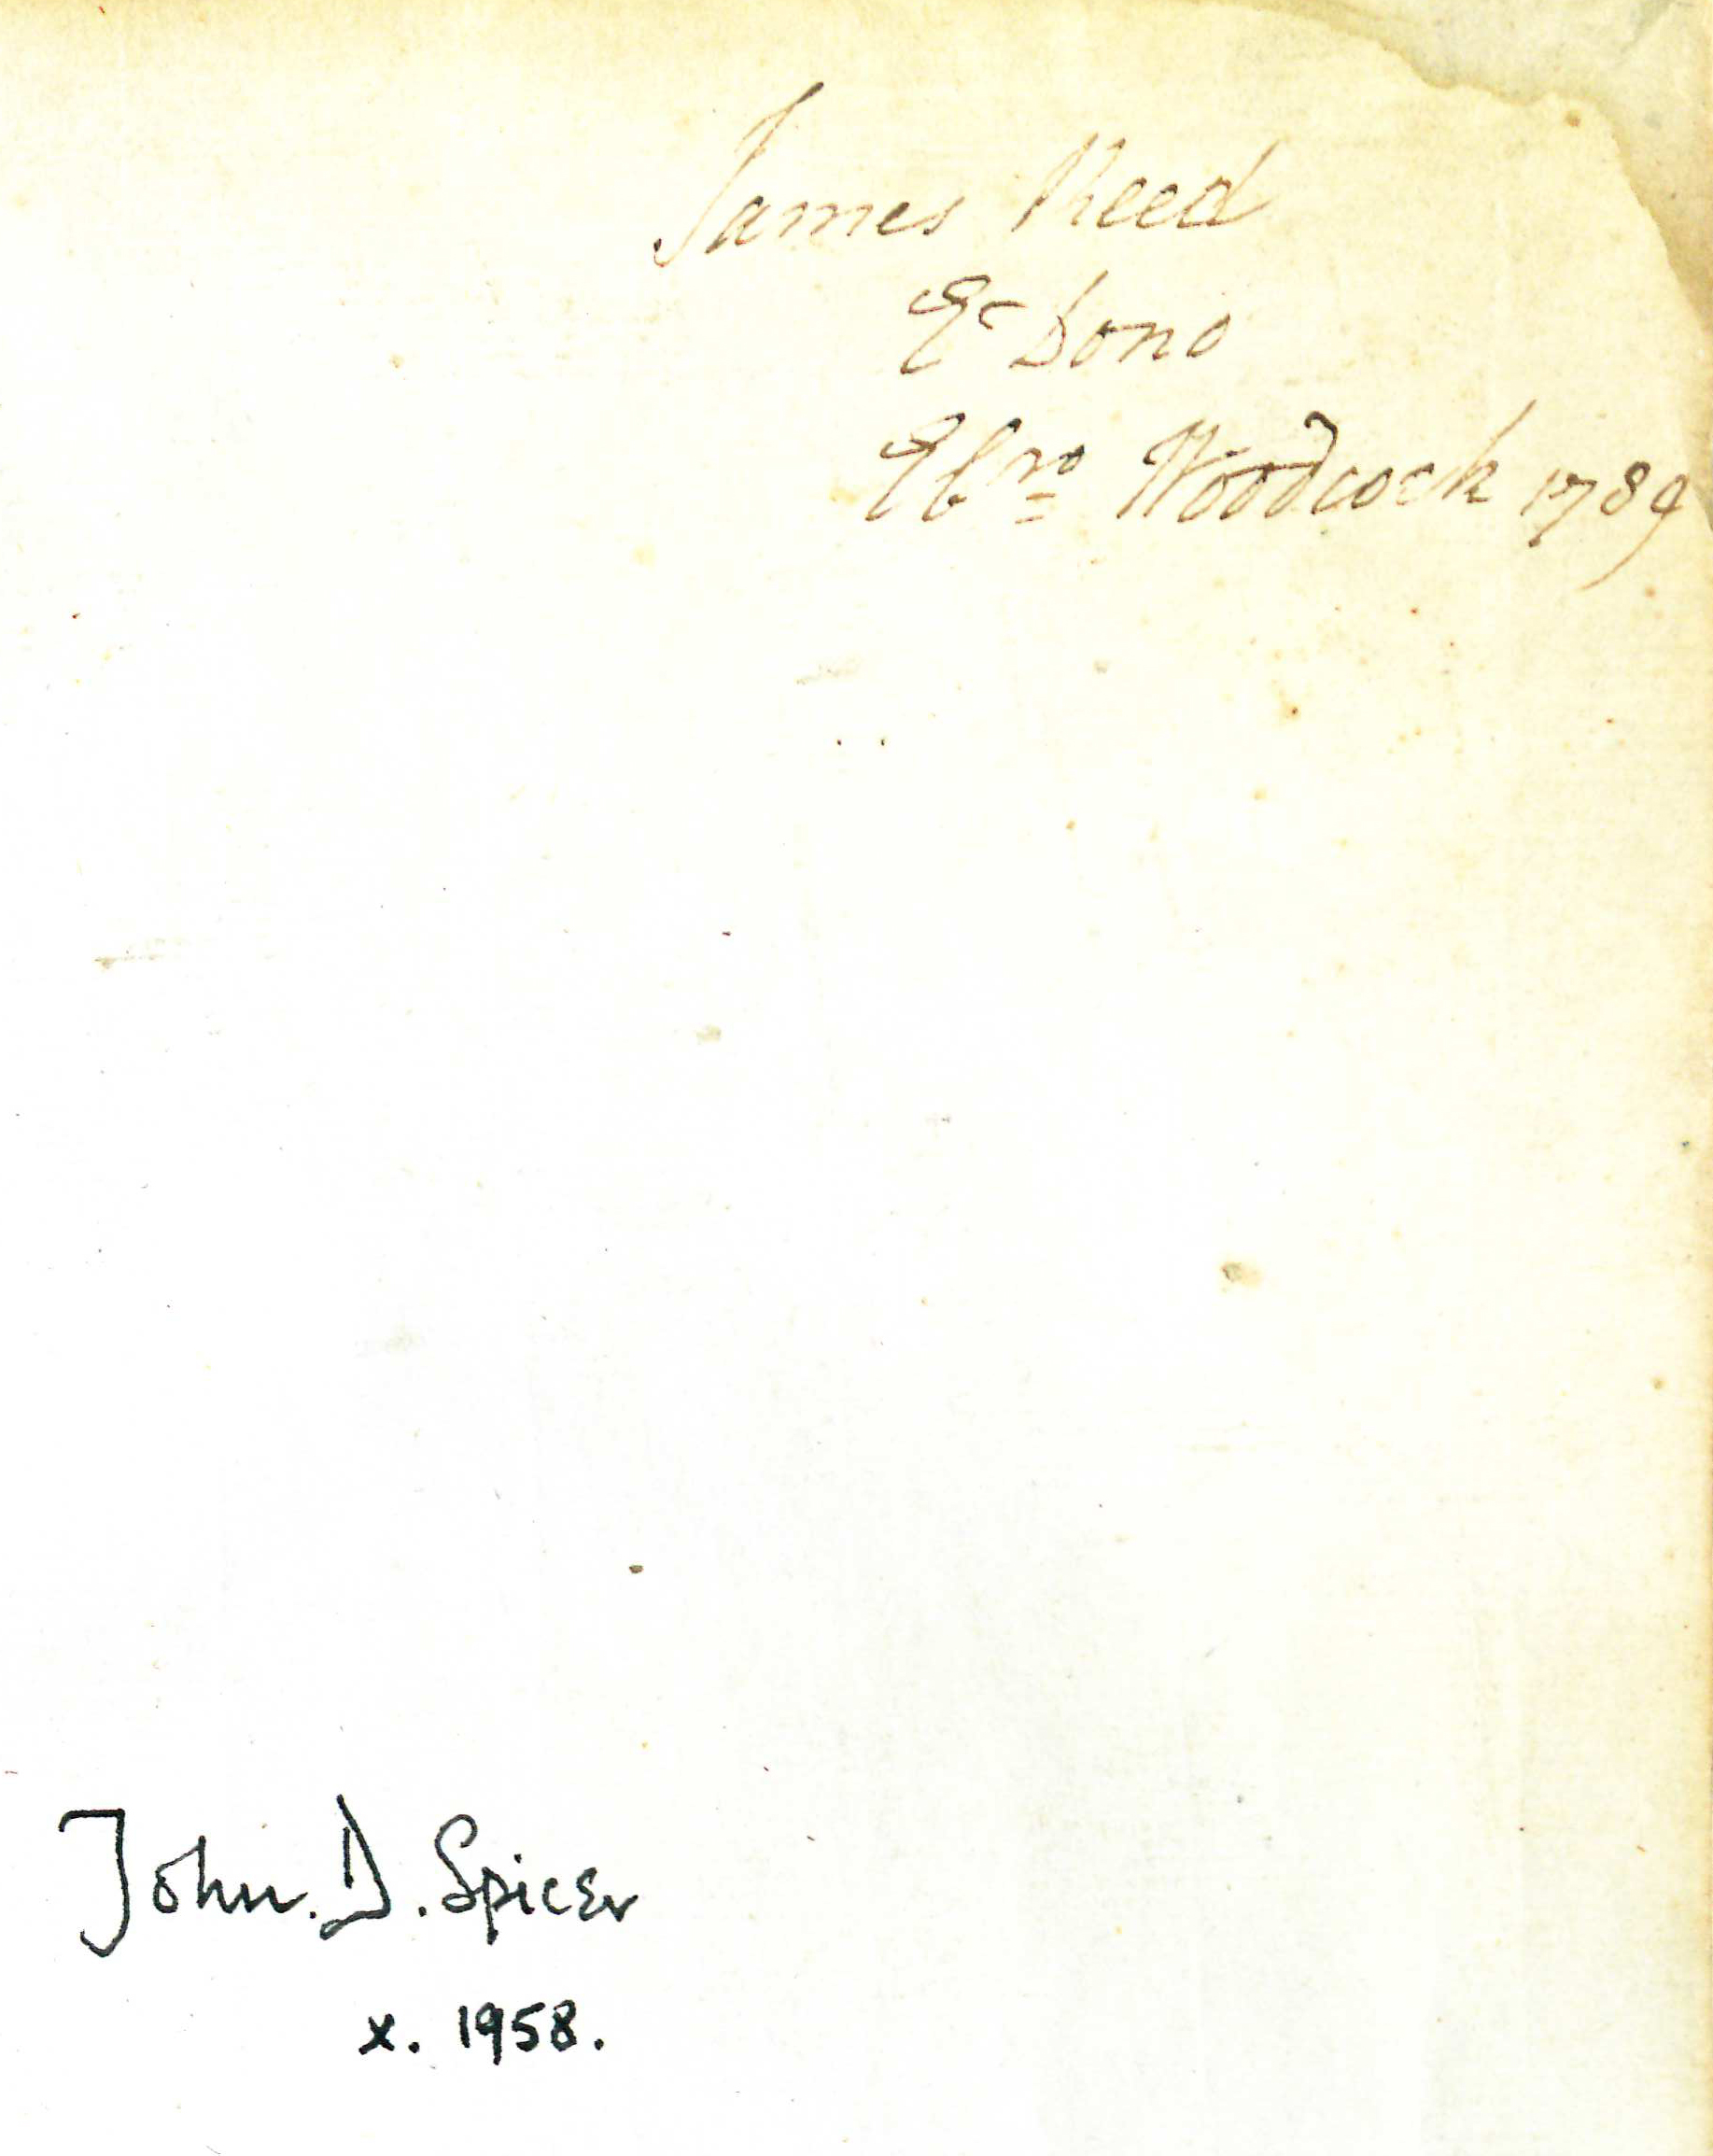 James Reed
E Dono
Ebro Woodcock 1789
John. D. Spicer
x. 1958.